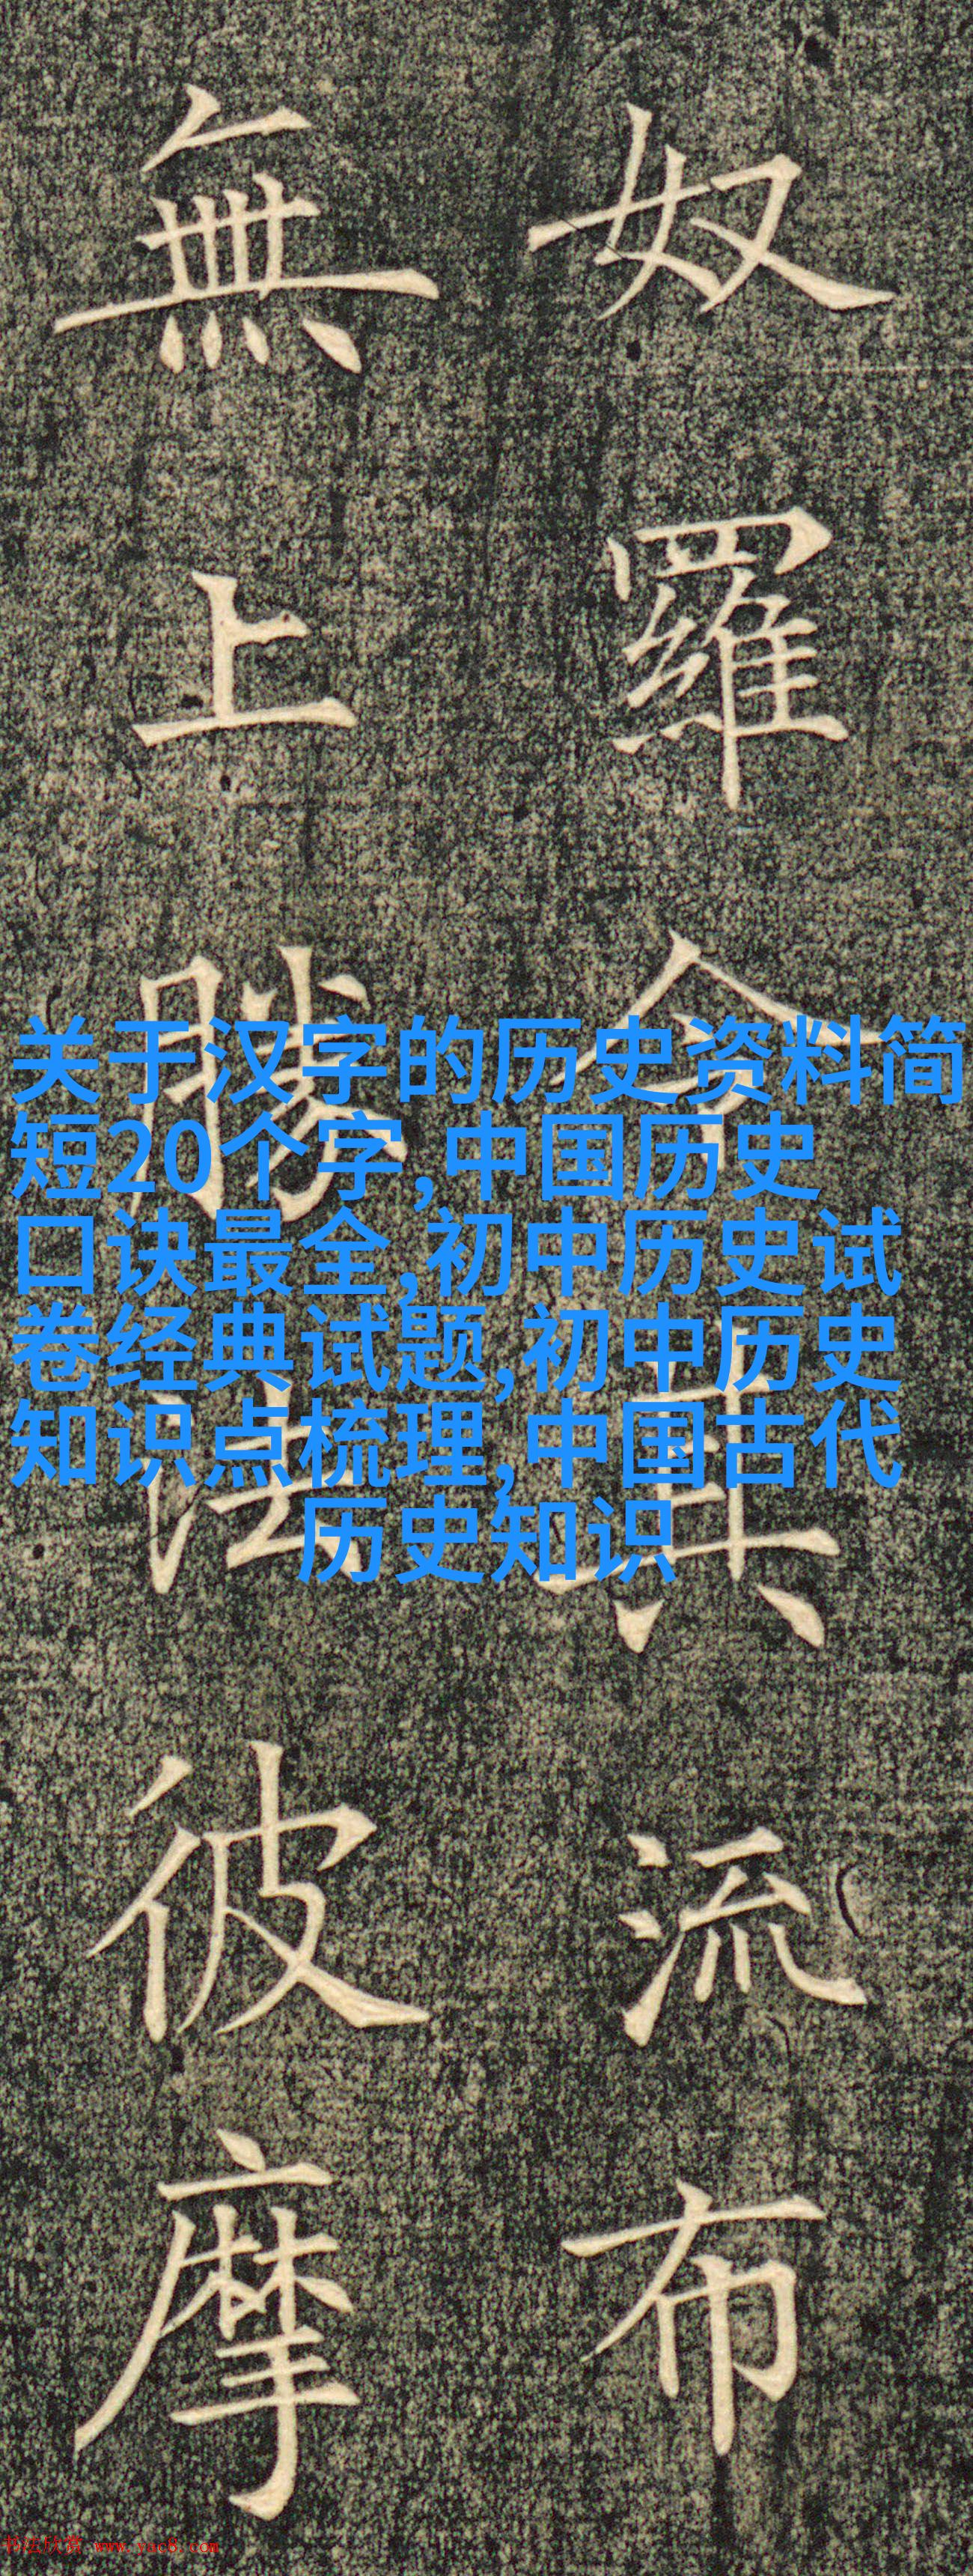 奴羅令其流布
無上勝法彼摩
关于汉字的历史资料简
短20个字,中国历史
口诀最全,初中历史试
卷经典试题,初中历史
知识点梳理,中国古代
历史知识
书法欣赏 www.yac8.com